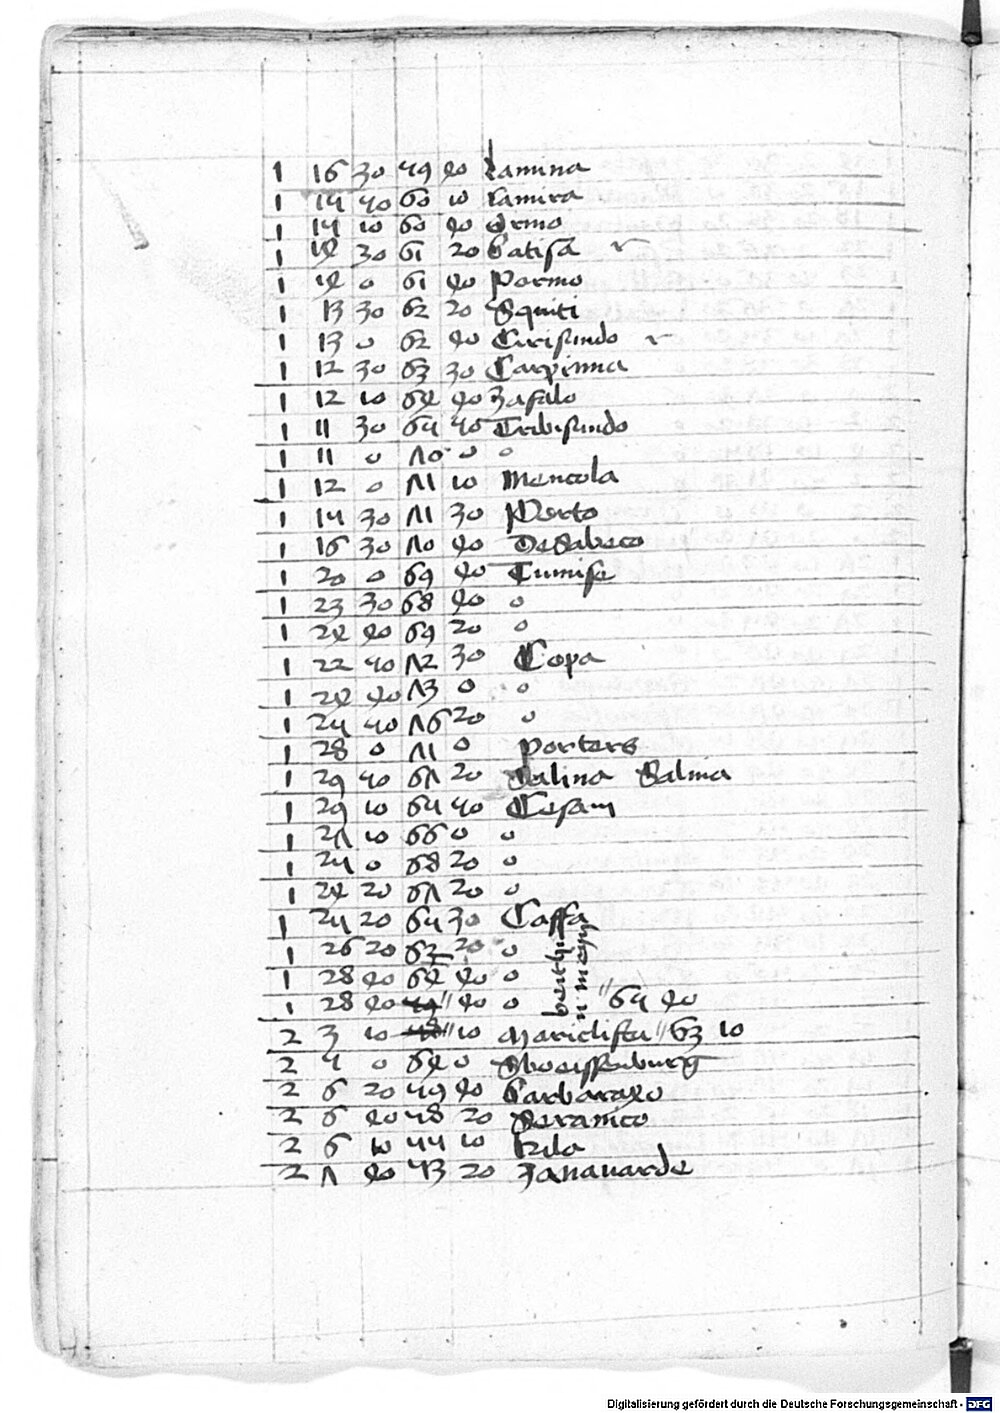 1 16 30 59 40 Lamina
1 15 50 60 10 Lamira
1 15 10 60 40 Ormo
1 14 30 61 20 Catisa
1 14 0 61 40 Pormo
1 13 30 62 20 Squiti
1 13 0 62 40 Cirisundo
1 12 30 63 30 Carpinna
1 12 10 64 40 Zafalo
1 11 30 65 50 Tribisundo
1 11 0 70 0 0
1 12 0 71 10 Mencola
1 15 30 71 30 Porto
1 16 30 70 40 DeSabaco
1 20 0 69 40 Tumise
1 23 30 68 40 0
1 24 40 69 20 0
1 22 50 72 30 Copa
1 24 40 73 0 0
1 25 50 76 20 0
1 28 0 71 0 porters
1 29 50 67 20 Salina Salina
1 29 10 65 50 Cesam
1 27 10 66 0 0
1 25 0 68 20 0
1 24 20 67 20 0
1 25 20 65 30 Caffa
1 26 20 63 20 0
1 28 40 64 40 0
1 28 40 59 // 40 0 // 65 40
2 3 10 58 // 10 Mariclista // 63 10
2 5 0 64 0
2 6 20 59 40
2 6 40 58 20
2 6 10 55 10 kilo
2 7 40 53 20 Zanauarde
Digitalisierung gefördert durch die Deutsche Forschungsgemeinschaft - DFG